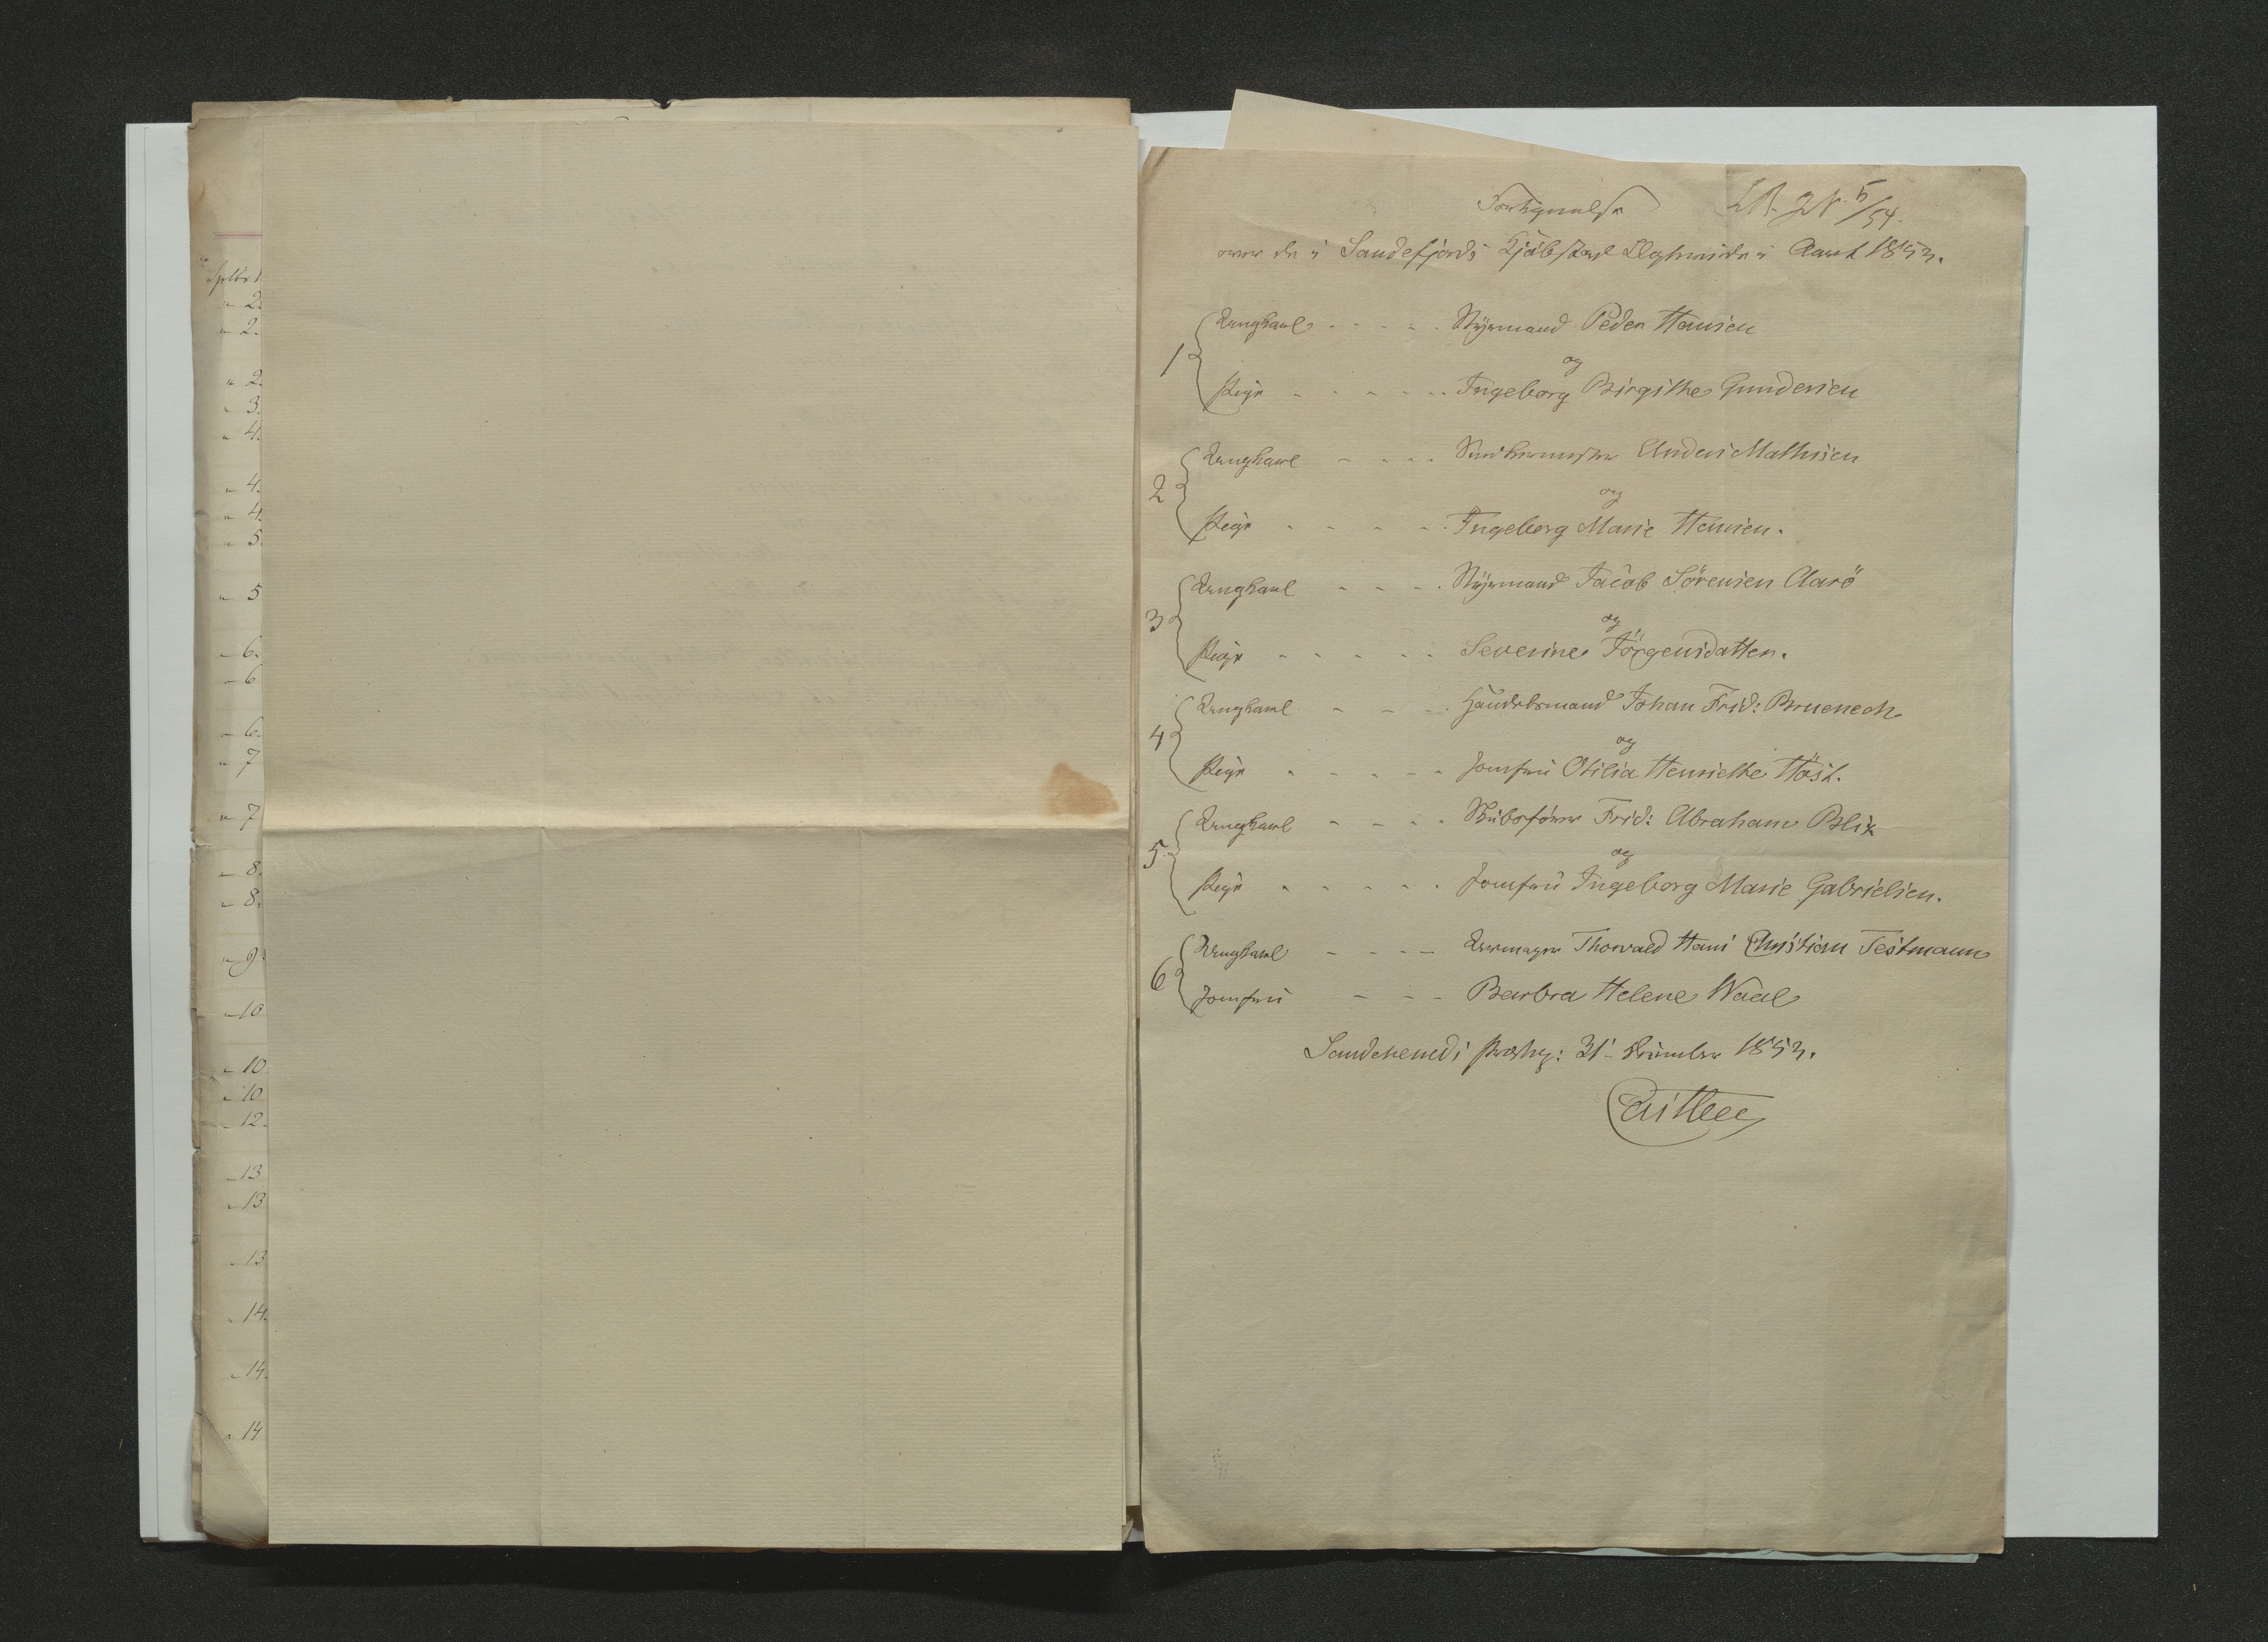 Septbr 1
" 2.
" 2.
" 2.
" 3.
" 4.
" 4.
" 4.
" 5.
" 5
" 6.
" 6
" 6.
" 7
" 7
" 8.
" 8.
" 9
" 10
" 10
" 10
" 12.
" 13
" 13
" 13
" 14.
" 14.
" 14
Fortegnelse
5/54.
over de i Sandefjords Kjøbstad Ægteviede i Aaret 1853.
1 Ungkarl - - - - Styrmand Peder Hansen
og
Pige - - - - - Ingeborg Birgithe Gundersen
2 Ungkarl - - - - Anders Mathisen
og
Pige - - - - Ingeborg Marie Hansen.
3 Ungkarl - - - - Styrmand Jacob Sørensen Aarö
og
Pige - - - - - Severine Jörgensdatter.
4 Ungkarl - - - Handelsmand Johan Frid: Bruenech
og
Pige - - - - - Jomfru Otilia Henriette Höst.
5 Ungkarl - - - - Skibsfører Frid: Abraham Blix
og
Pige - - - - - Jomfru Ingeborg Marie Gabrielsen.
6 Ungkarl - - - - Urmager Thorvald Hans Christian Testmann
Jomfru - - - Barbra Helene Waal
Sandeherreds Præstg: 31' December 1853.